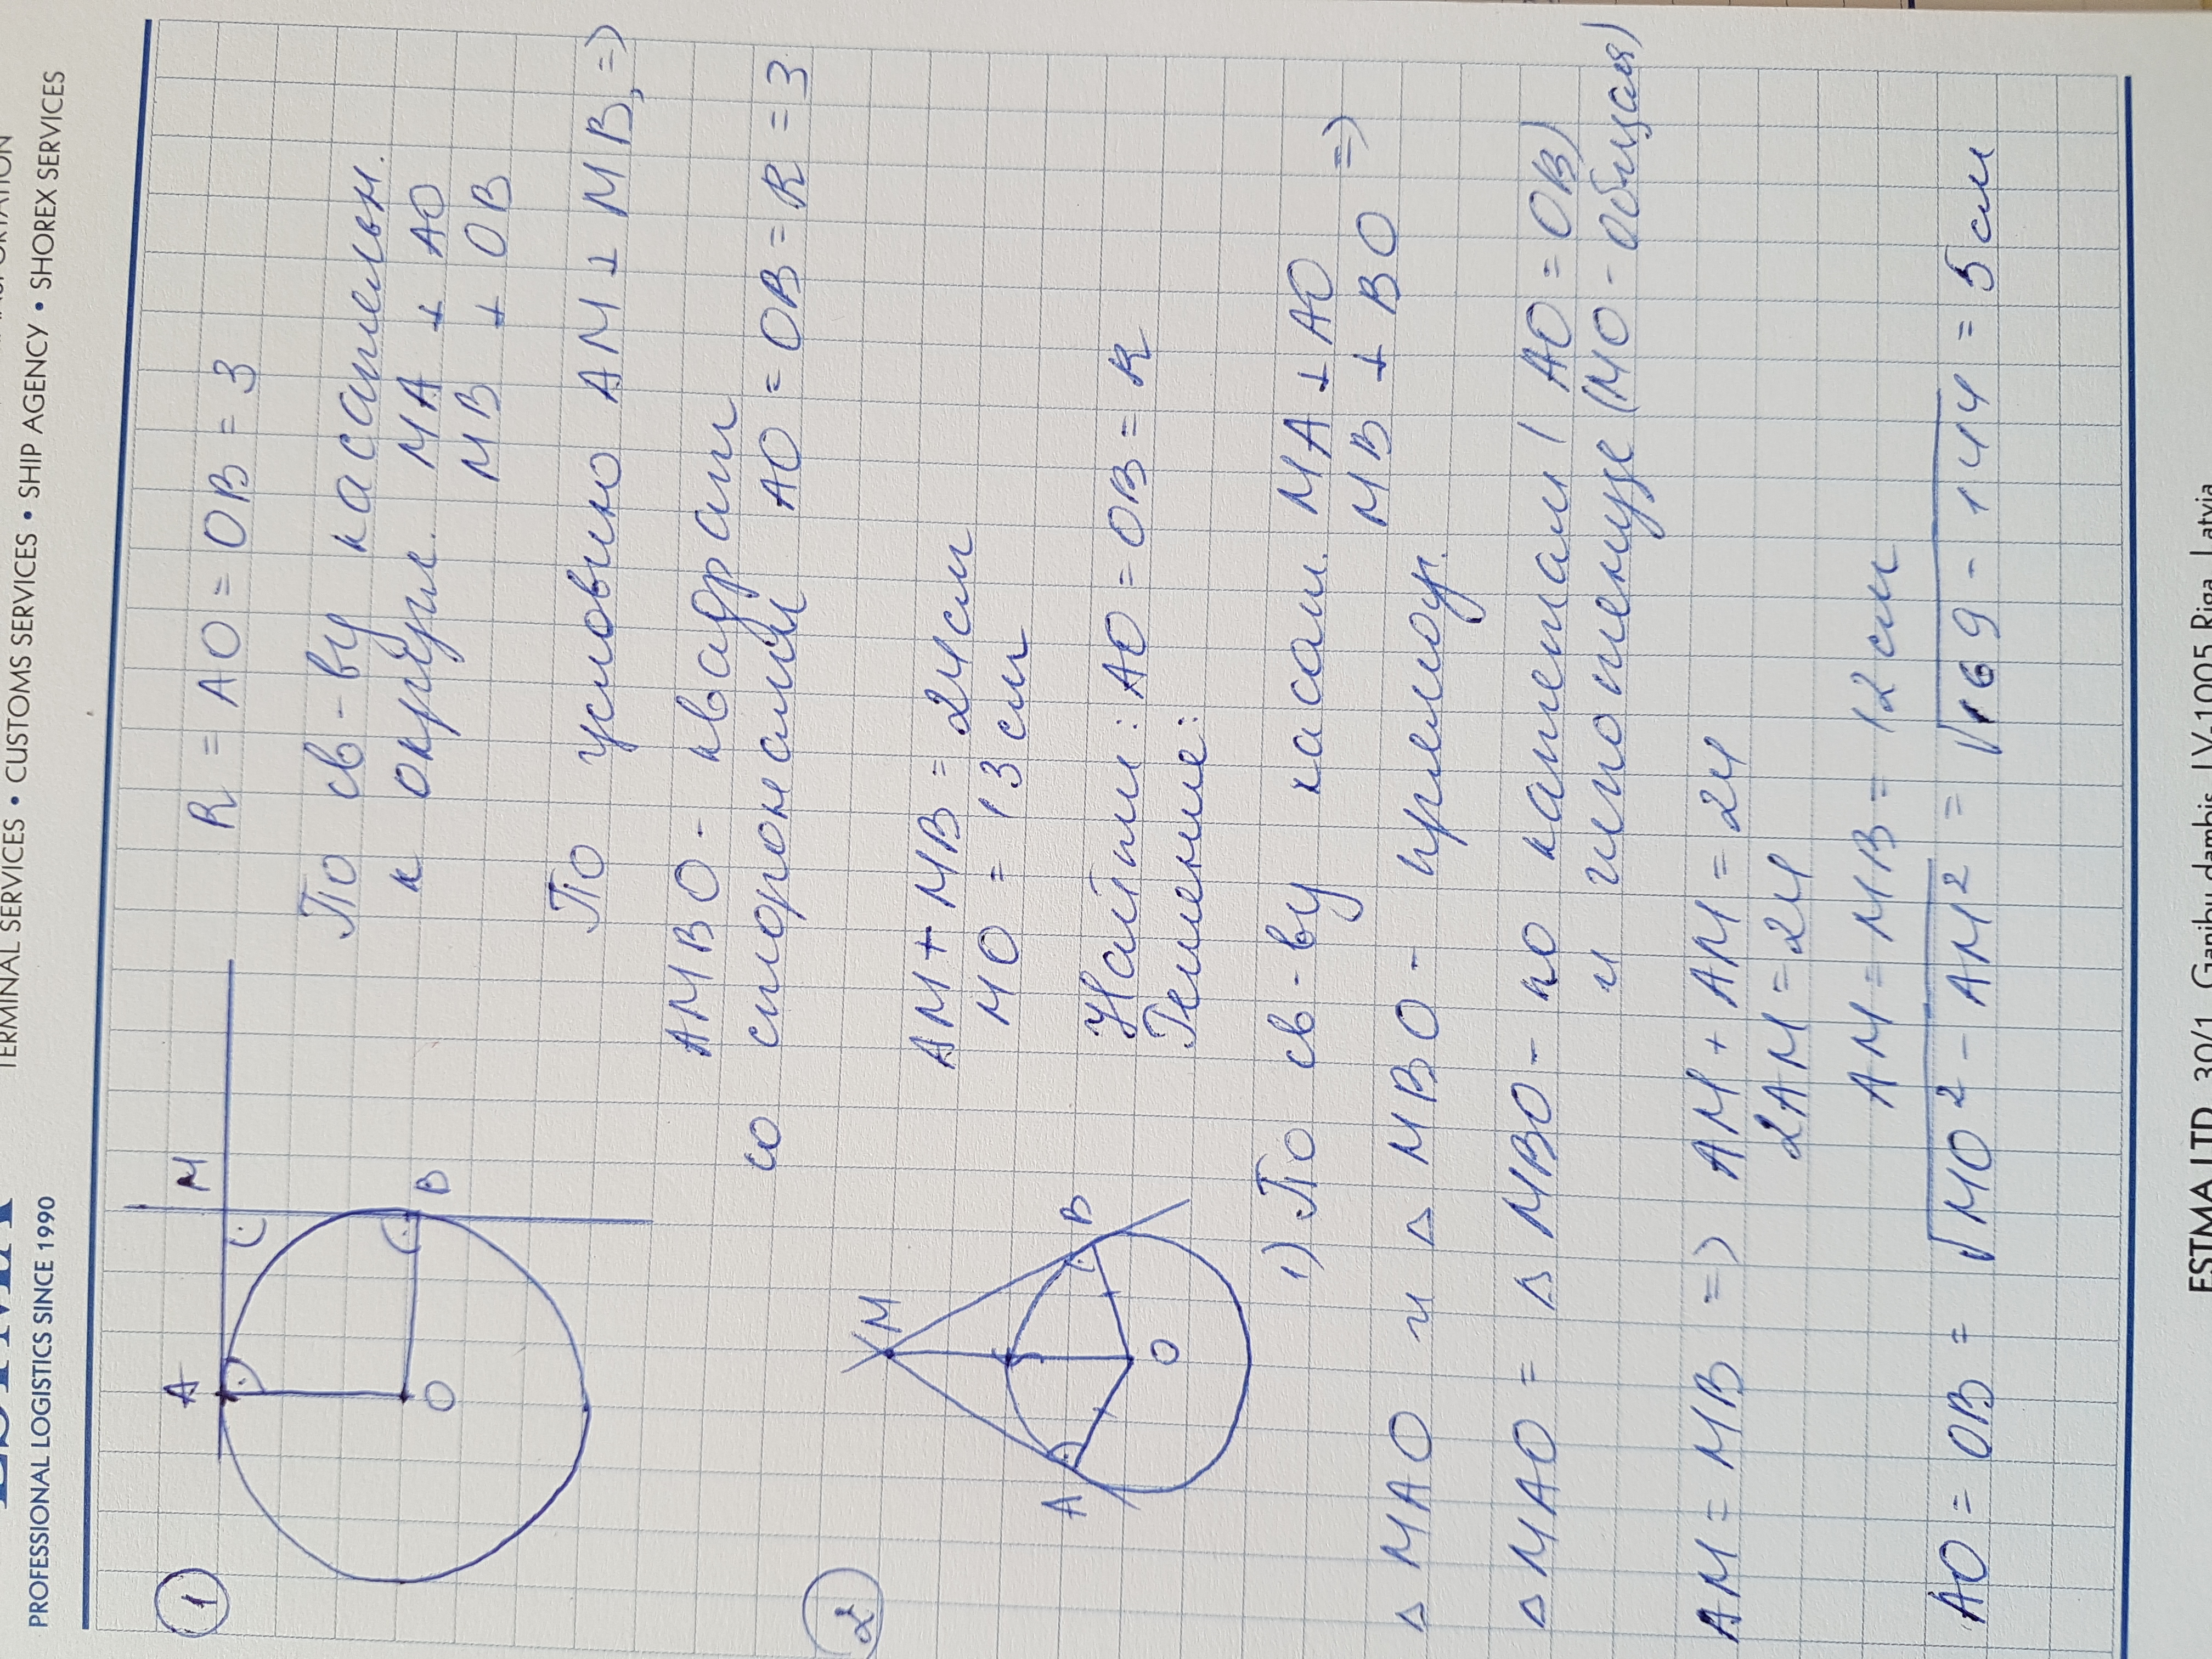 TERMINAL SERVICES • CUSTOMS SERVICES • SHIP AGENCY • SHOREX SERVICES
PROFESSIONAL LOGISTICS SINCE 1990
1
A
M
O
B
R = AO = OB = 3
По св-ву касательн.
к окружн. MA ⊥ AO
MB ⊥ OB
По условию AM ⊥ MB, =>
AMBO - квадрат
со сторонами AO = OB = R = 3
2
M
A
B
O
AM + MB = 24 см
MO = 13 см
Найти: AO = OB = R
Решение:
1) По св-ву касат. MA ⊥ AO
MB ⊥ BO =>
△ MAO и △ MBO - прямоуг.
△ MAO = △ MBO - по катетам (AO = OB)
и гипотенузе (MO - общая)
AM = MB => AM + AM = 24
2AM = 24
AM = MB = 12 см
AO = OB = √MO² - AM² = √169 - 144 = 5 см
ESTMA LTD, 30/1, Ganibu dambis, LV-1005 Riga, Latvia